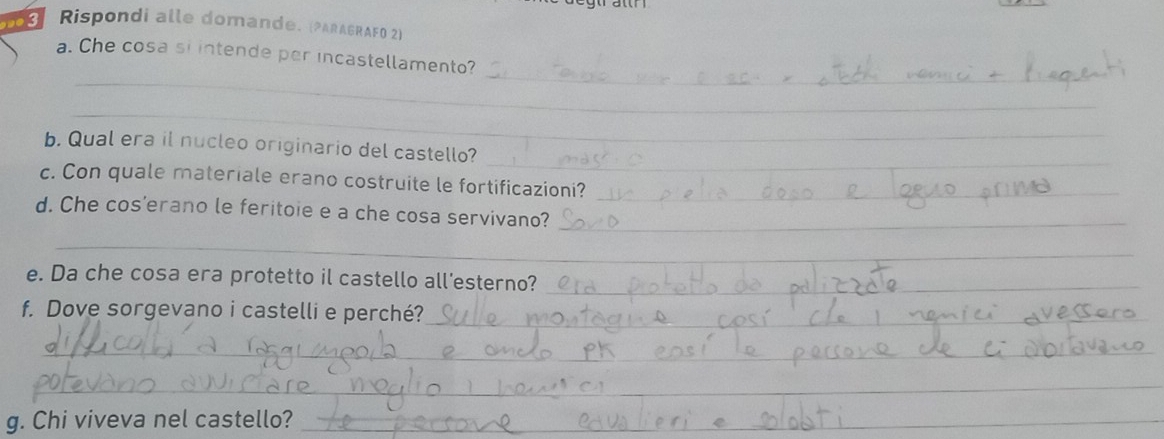 degli altri
3 Rispondi alle domande. (PARAGRAFO 2)
a. Che cosa si intende per incastellamento? nemici + frequenti
b. Qual era il nucleo originario del castello?
c. Con quale materiale erano costruite le fortificazioni? in dopo e legno prima
d. Che cos'erano le feritoie e a che cosa servivano? Sono
e. Da che cosa era protetto il castello all'esterno? era protetto da palizzate
f. Dove sorgevano i castelli e perché? Sulle montagne così che i nemici avessero
difficoltà a e anche per così le persone che ci abitavano
potevano meglio i nemici
g. Chi viveva nel castello? le persone cavalieri e soldati